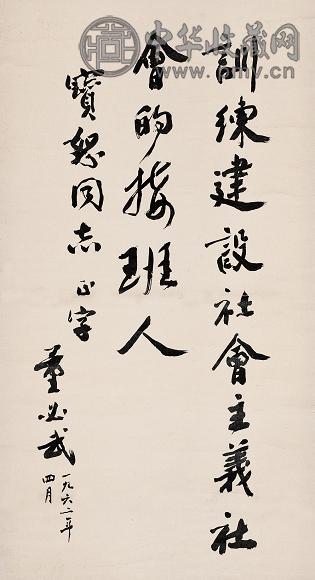 訓練建設社會主義社
會的接班人
寶恕同志正字
董必武
一九六二年
四月
中华收藏网